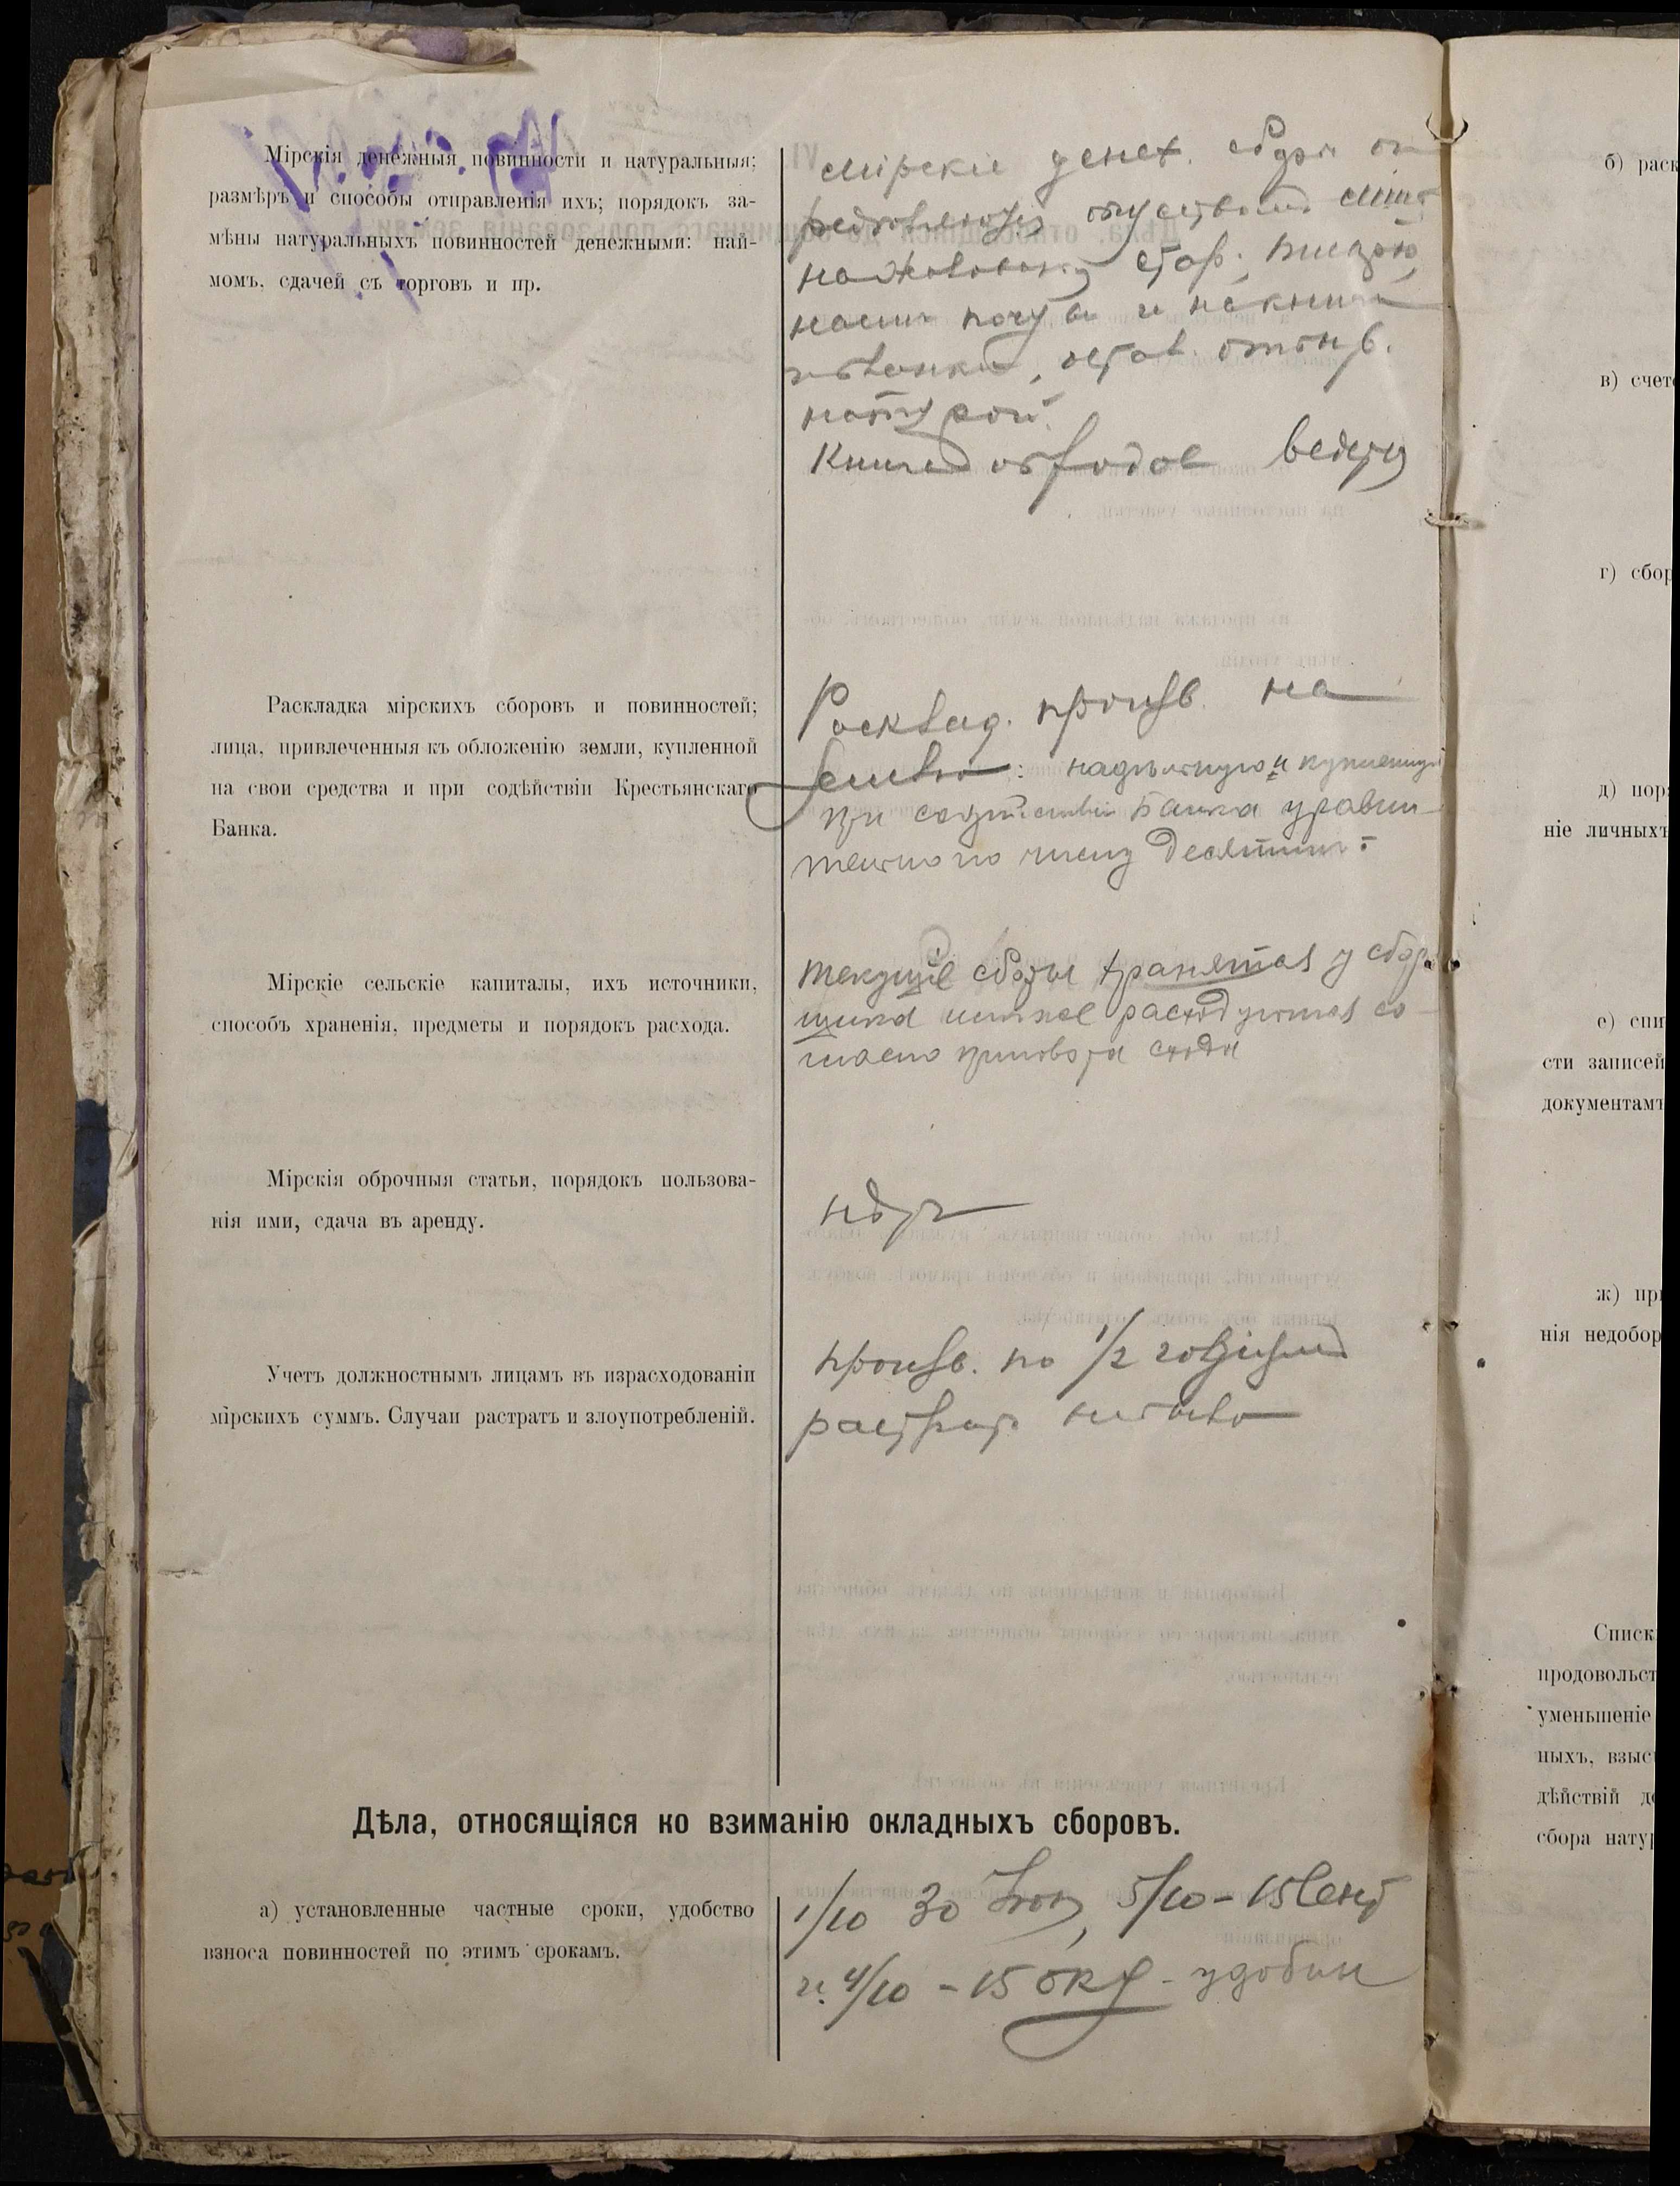 Мірскія денежныя повинности и натуральныя;
размѣръ и способы отправленія ихъ; порядокъ за-
мѣны натуральныхъ повинностей денежными: най-
момъ, сдачей съ торговъ и пр.
мірскіе денеж. сборы
жалованье стар.,
натурой.
Книга расходов ведется
Раскладка мірскихъ сборовъ и повинностей;
лица, привлеченныя къ обложенію земли, купленной
на свои средства и при содѣйствіи Крестьянскаго
Банка.
Расклад. произв. на
землю: надѣльную и купленную
при содѣйствіи банка уравни-
тельно по числу десятинъ.
Мірскіе сельскіе капиталы, ихъ источники,
способъ храненія, предметы и порядокъ расхода.
текущіе сборы хранятся у сбор-
щика расходуются со-
гласно приговора схода
Мірскія оброчныя статьи, порядокъ пользова-
нія ими, сдача въ аренду.
нѣтъ
Учетъ должностнымъ лицамъ въ израсходованіи
мірскихъ суммъ. Случаи растратъ и злоупотребленій.
произв. по 1/2 годіямъ
растрат не было
Дѣла, относящіяся ко взиманію окладныхъ сборовъ.
а) установленные частные сроки, удобство
взноса повинностей по этимъ срокамъ.
1/10 30 Іюн, 5/10 - 15 Сент
и 4/10 - 15 окт - удобны
б) раск
в) счет
г) сбор
д) пор
ніе личныхъ
е) спи
сти записей
документамъ
ж) пр
нія недобор
Списк
продовольст
уменьшеніе
ныхъ, взыс
дѣйствій д
сбора нату